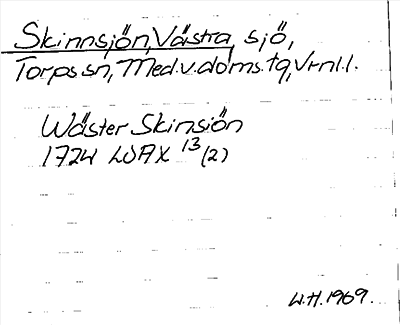 Skinnsjön, Västra, sjö,
Torps sn, Med.v.doms.tg, Vrnl.l.
Wäster Skinsiön
1724 LSAX 13 (2)
W.H. 1969.